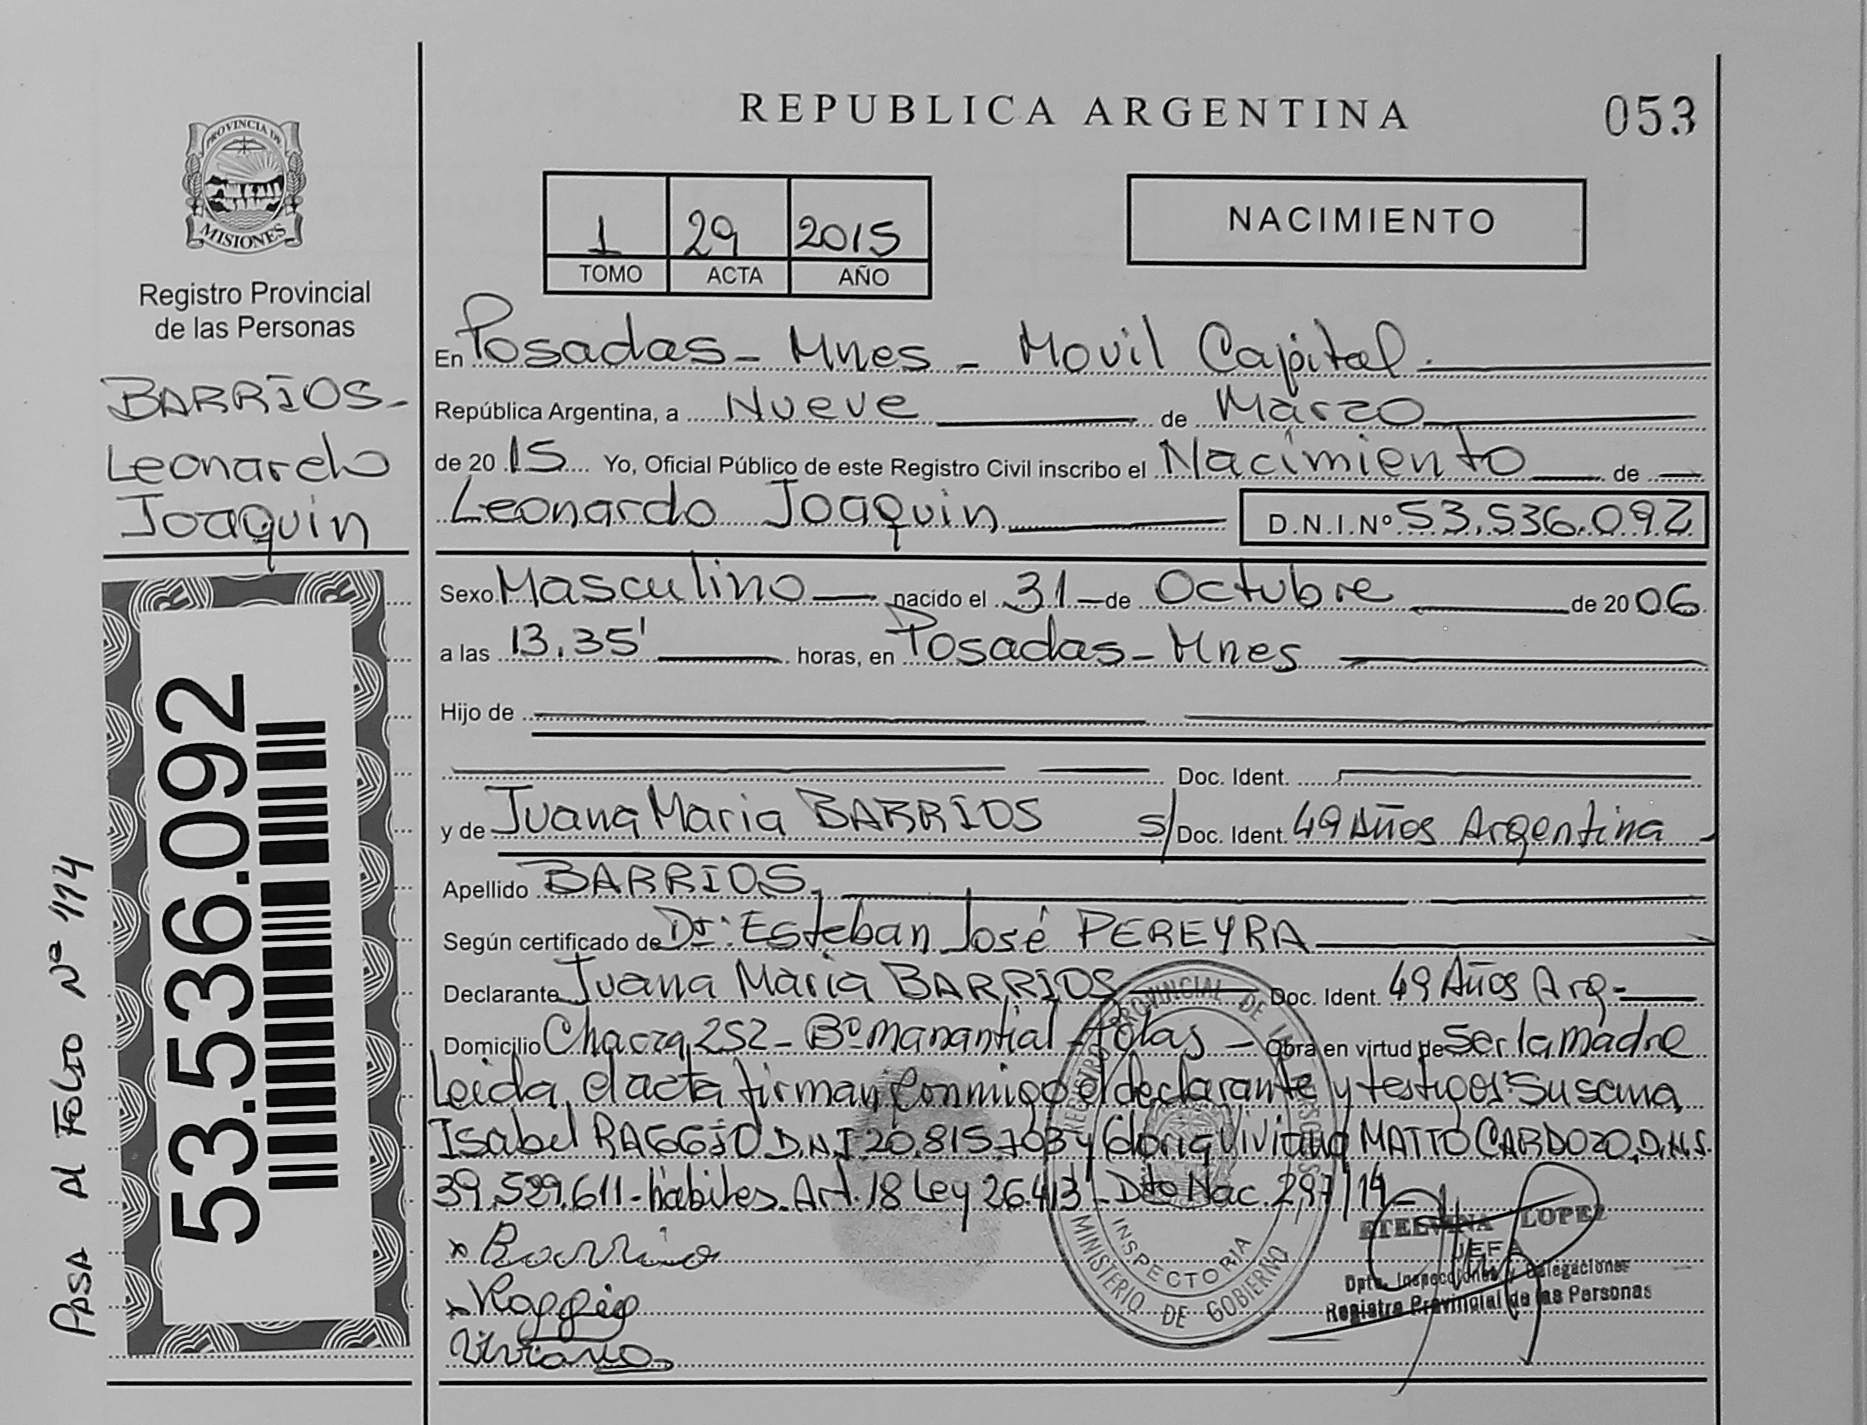 REPUBLICA ARGENTINA
053
PROVINCIA DE
MISIONES
Registro Provincial
de las Personas
BARRIOS-
Leonardo
Joaquin
53.536.092
PASA Al Folio Nº 114
1 29 2015
TOMO ACTA AÑO
NACIMIENTO
En Posadas - Mnes - Movil Capital.
República Argentina, a Nueve de Marzo
de 2015 Yo, Oficial Público de este Registro Civil inscribo el Nacimiento de
Leonardo Joaquin D.N.I.Nº 53.536.092
Sexo Masculino nacido el 31 de Octubre de 2006
a las 13.35' horas, en Posadas - Mnes
Hijo de
Doc. Ident.
y de Juana Maria BARRIOS s/ Doc. Ident. 49 Años Argentina
Apellido BARRIOS
Según certificado de Dr. Esteban José PEREYRA
Declarante Juana Maria BARRIOS Doc. Ident. 49 Años Arg-
Domicilio Chacra 252 - Bº Manantial - Pdas - Obra en virtud de Ser la madre
Leida el acta firman conmigo el declarante y testigos Susana
Isabel RAGGIO D.N.I 20.815.703 y Gloria Viviana MATTO CARDOZO, D.N.I.
39.529.611 - habiles. Art. 18 Ley 26.413 - Dto Nac. 297/14 -
x Barrios
x Raggio
Viviana
REGISTRO PROVINCIAL DE LAS PERSONAS
INSPECTORIA
MINISTERIO DE GOBIERNO
ETELVINA LOPEZ
JEFA
Dpto. Inspecciones y Delegaciones
Registro Provincial de las Personas